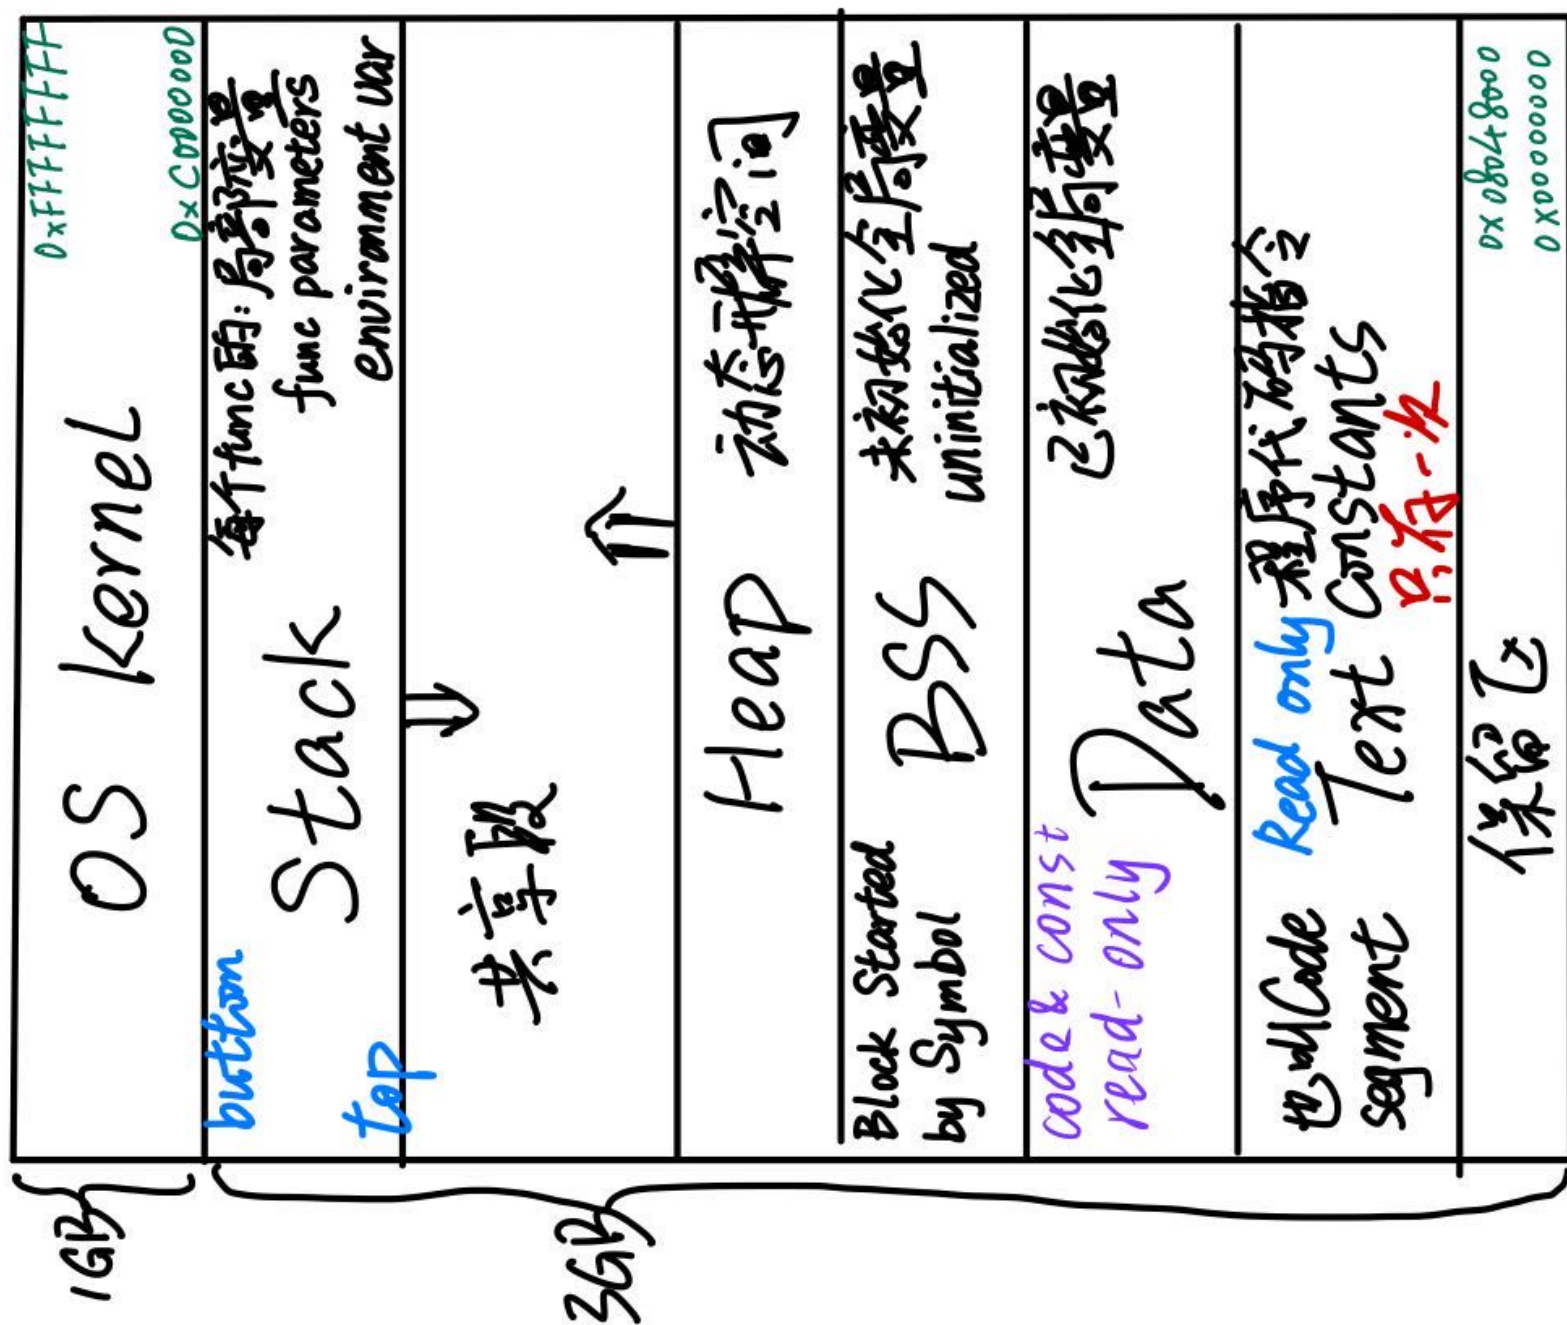 0xFFFFFFFF
OS kernel
0xC0000000
1GB
button
Stack
每个func的:局部变量
func parameters
environment var
top
共享段
3GB
Heap
动态开辟空间
Block Started
by Symbol
BSS
未初始化全局变量
uninitialized
code & const
read-only
Data
已初始化全局变量
也叫Code
segment
Read only
Text
程序代码指令
Constants
只存一次
0x08048000
保留区
0x00000000